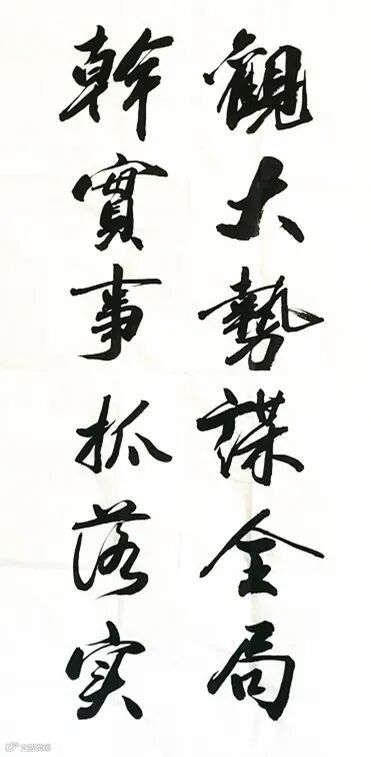 觀大勢謀全局
幹實事抓落实